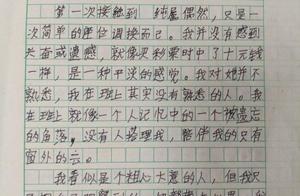 第一次接触到 纯属偶然，只是一
次简单的座位调换而已。我并没有感到
兴奋或遗憾，就像买彩票时中了十元钱
一样，是一种平淡的感觉。我对她并不
熟悉，我在班上其实没有熟悉的人。我
在班上就像一个人记忆中的一个被遗忘
的角落，没有人搭理我，陪伴我的只有
窗外的云。
我看似是个粗心大意的人，但我只